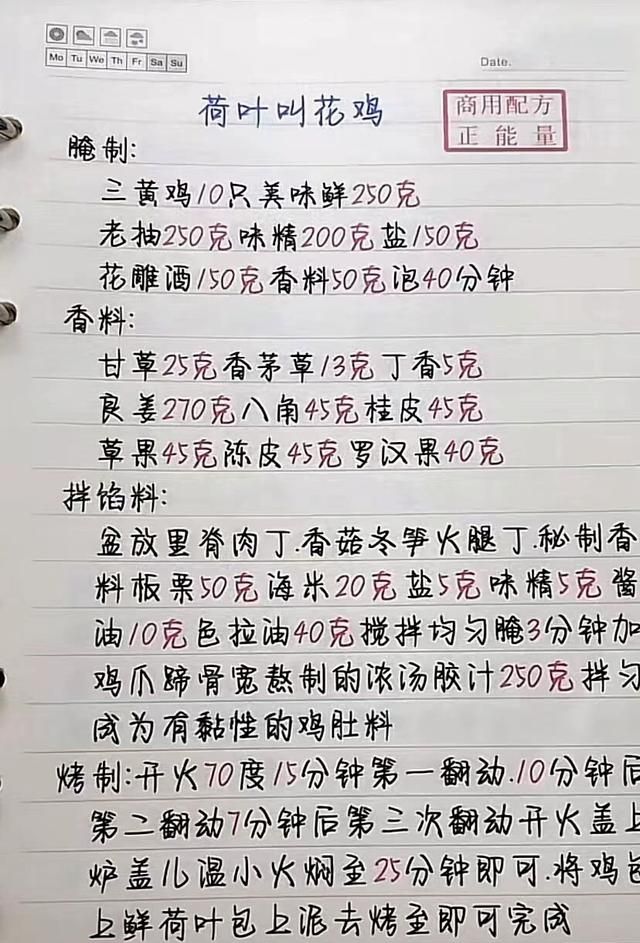 Mo Tu We Th Fr Sa Su
Date.
荷叶叫花鸡
商用配方
正能量
腌制:
三黄鸡10只美味鲜250克
老抽250克味精200克盐150克
花雕酒150克香料50克泡40分钟
香料:
甘草25克香茅草13克丁香5克
良姜270克八角45克桂皮45克
草果45克陈皮45克罗汉果40克
拌馅料:
盆放里脊肉丁.香菇冬笋火腿丁.秘制香
料板栗50克海米20克盐5克味精5克酱
油10克色拉油40克搅拌均匀腌3分钟加
鸡爪蹄骨宽熬制的浓汤胶汁250克拌匀
成为有黏性的鸡肚料
烤制:开火70度15分钟第一翻动.10分钟后
第二翻动7分钟后第三次翻动开火盖上
炉盖儿温小火焖至25分钟即可.将鸡包
上鲜荷叶包上泥去烤至即可完成